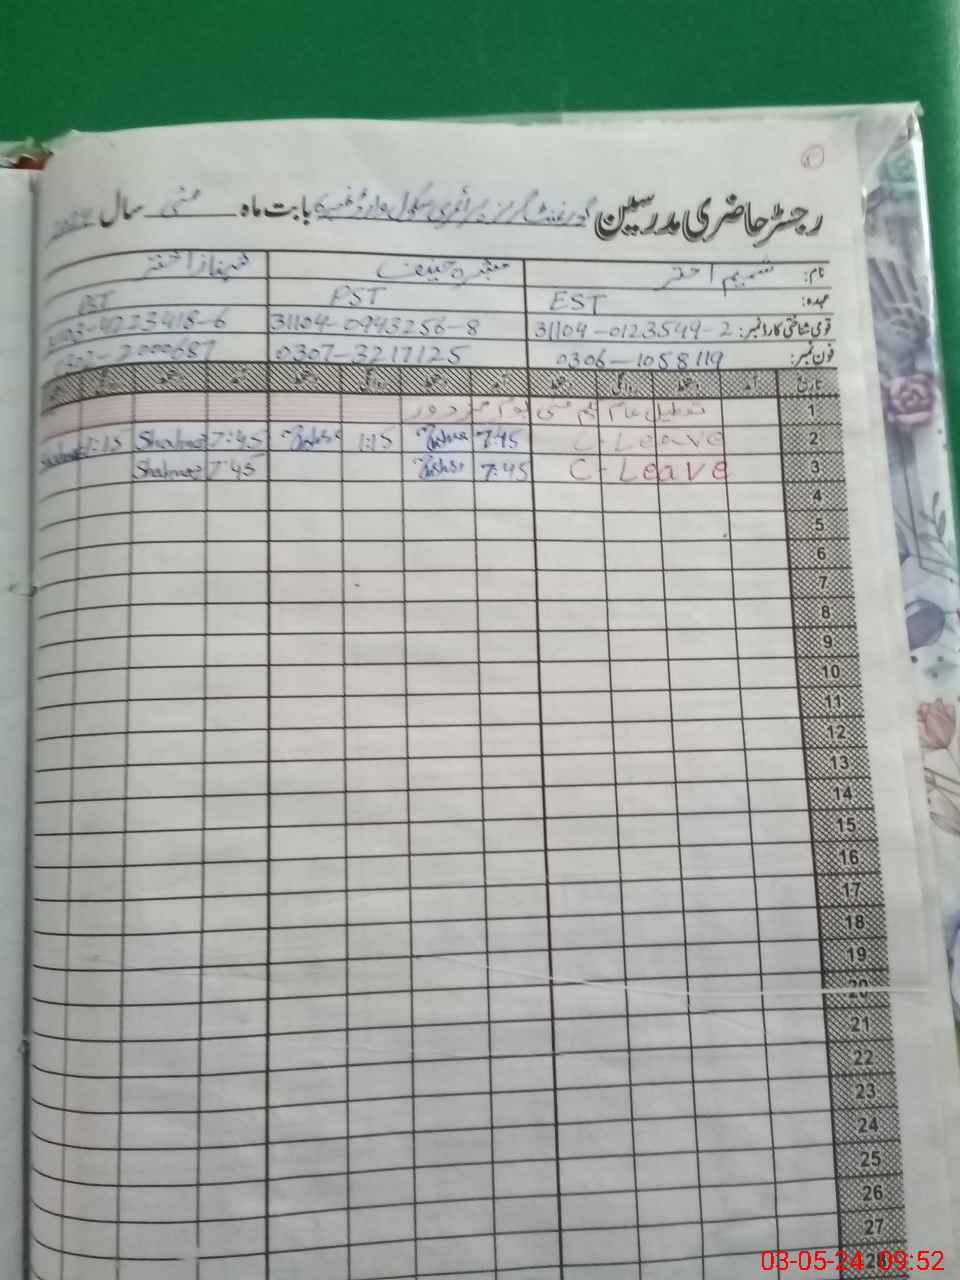 رجسٹر حاضری مدرسین گورنمنٹ گرلز پرائمری سکول وارڈ نمبر 6 بابت ماہ مئی سال
نام: شمیم اختر مبشرہ حنیف شہناز اختر
عہدہ: EST PST PST
قومی شناختی کارڈ نمبر: 31104-0123549-2 31104-0943256-8 31103-4223418-6
فون نمبر: 0306-1058119 0307-3217125 2000687
تاریخ آمد دستخط روانگی دستخط آمد دستخط روانگی دستخط آمد دستخط روانگی
1 تعطیل عام یکم مئی یوم مزدور
2 C-Leave 7:45 1:15 7:45 Shahnaz 1:15 Shahnaz
3 C-Leave 7:45 7:45 Shahnaz
4
5
6
7
8
9
10
11
12
13
14
15
16
17
18
19
20
21
22
23
24
25
26
27
28
03-05-24 09:52